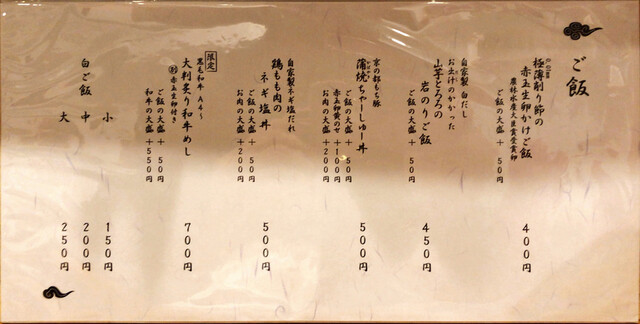 ご飯
極薄削り節の
赤玉生卵かけご飯
農林水産大臣賞受賞卵
ご飯の大盛 +50円
400円
自家製 白だし
お出汁のかかった
山芋とろろの
岩のりご飯
ご飯の大盛 +50円
450円
京の都もち豚
蒲焼ちゃーしゅー丼
ご飯の大盛 +50円
赤玉卵黄のせ +100円
お肉の大盛 +200円
500円
自家製ネギ塩だれ
鶏もも肉の
ネギ塩丼
ご飯の大盛 +50円
お肉の大盛 +200円
500円
限定
黒毛和牛 A4〜
大判炙り和牛めし
赤玉生卵付き
ご飯の大盛 +50円
和牛の大盛 +550円
700円
白ご飯
小 150円
中 200円
大 250円